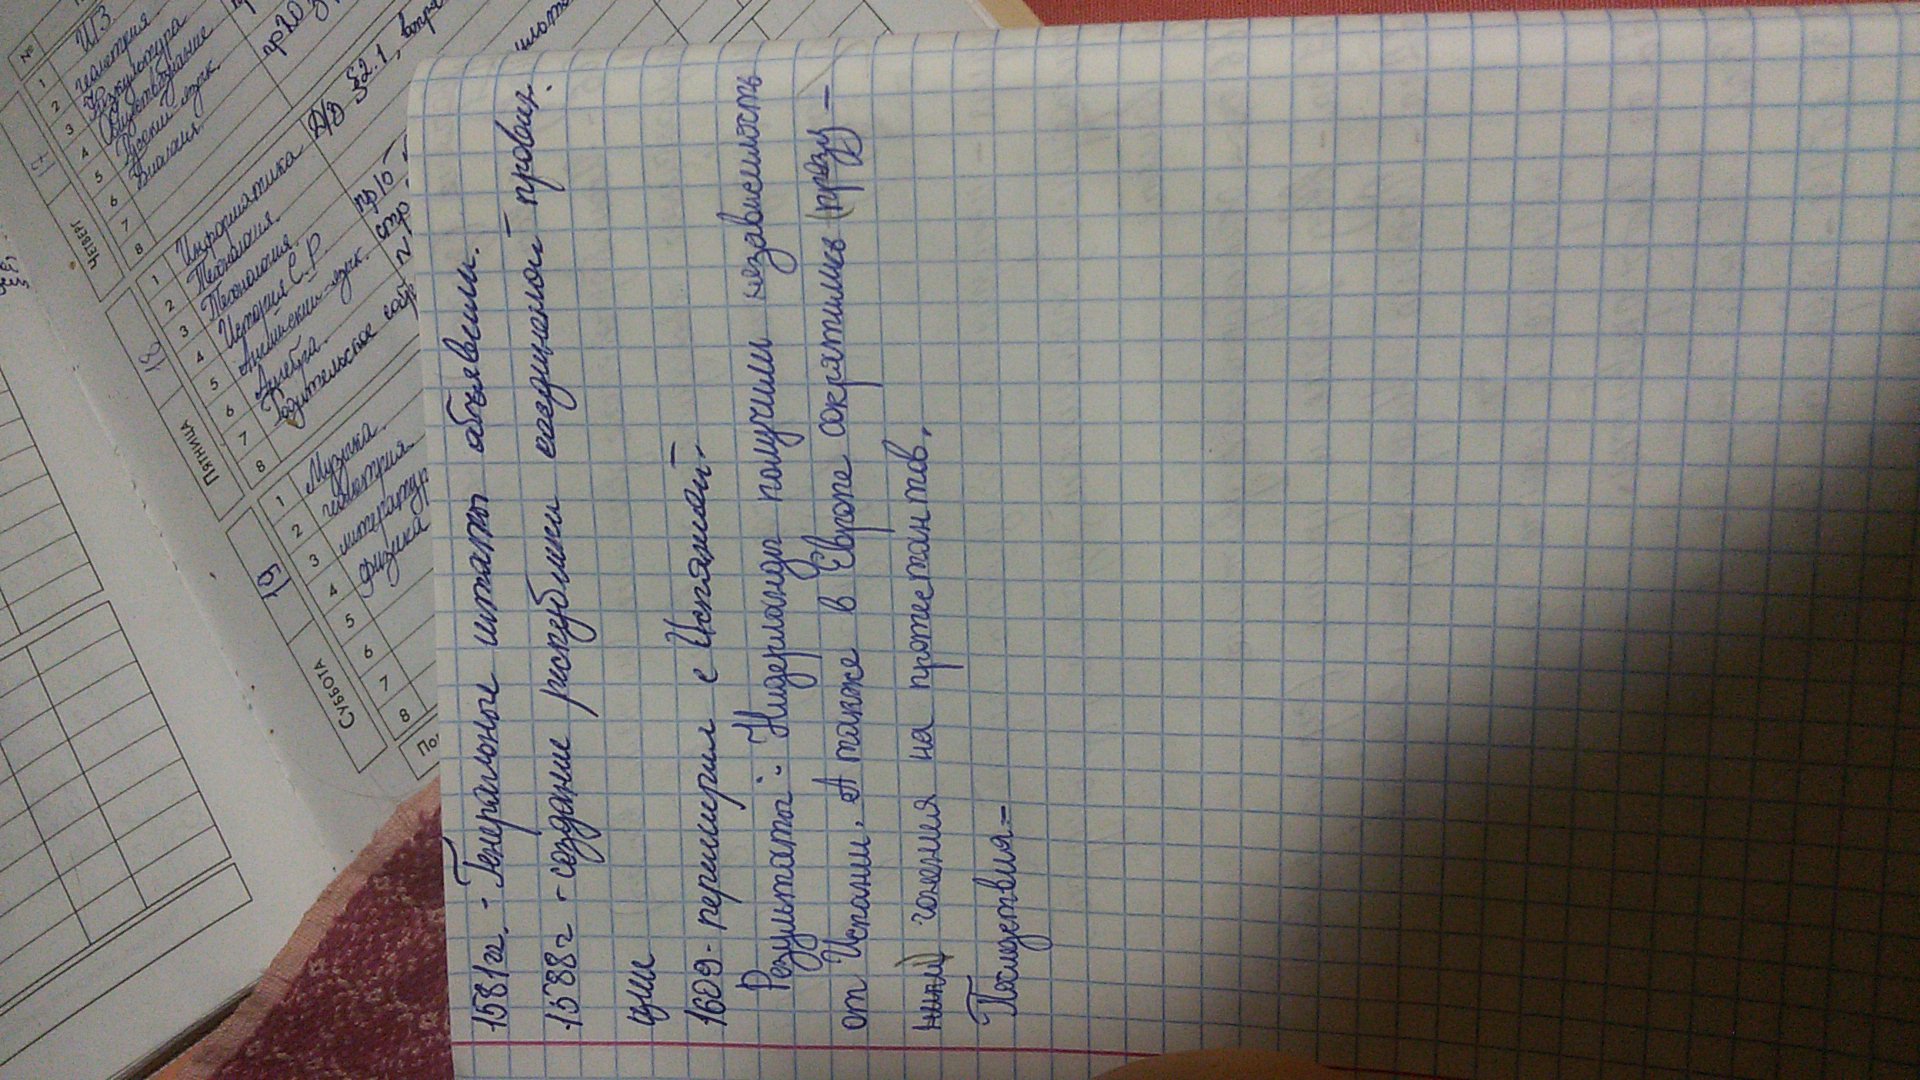 1581гг. - Генеральные штаты объявели.
1588г - создание распублики соединеной провин.
ции
1609 - перемирия с Испанией.
Результаты: Нидерланды получили независимость
от Испании. А также в Европе сократились
гонения на протестантов.
Последствия -
№
ЧЕТВЕРГ
17
1 ИЗ
2 геометрия
3 Физкультура
4 Обществознание
5 Русский язык.
6 Биология.
7
8
ПЯТНИЦА
18
1 Информатика Д/З §2.1,
2 Технология.
3 Технология.
4 История С.Р
5 Английский язык.
6 Алгебра.
7 Родительское собр
8
СУББОТА
19
1 Музыка.
2 геометрия.
3 литератур
4 физика
5
6
7
8